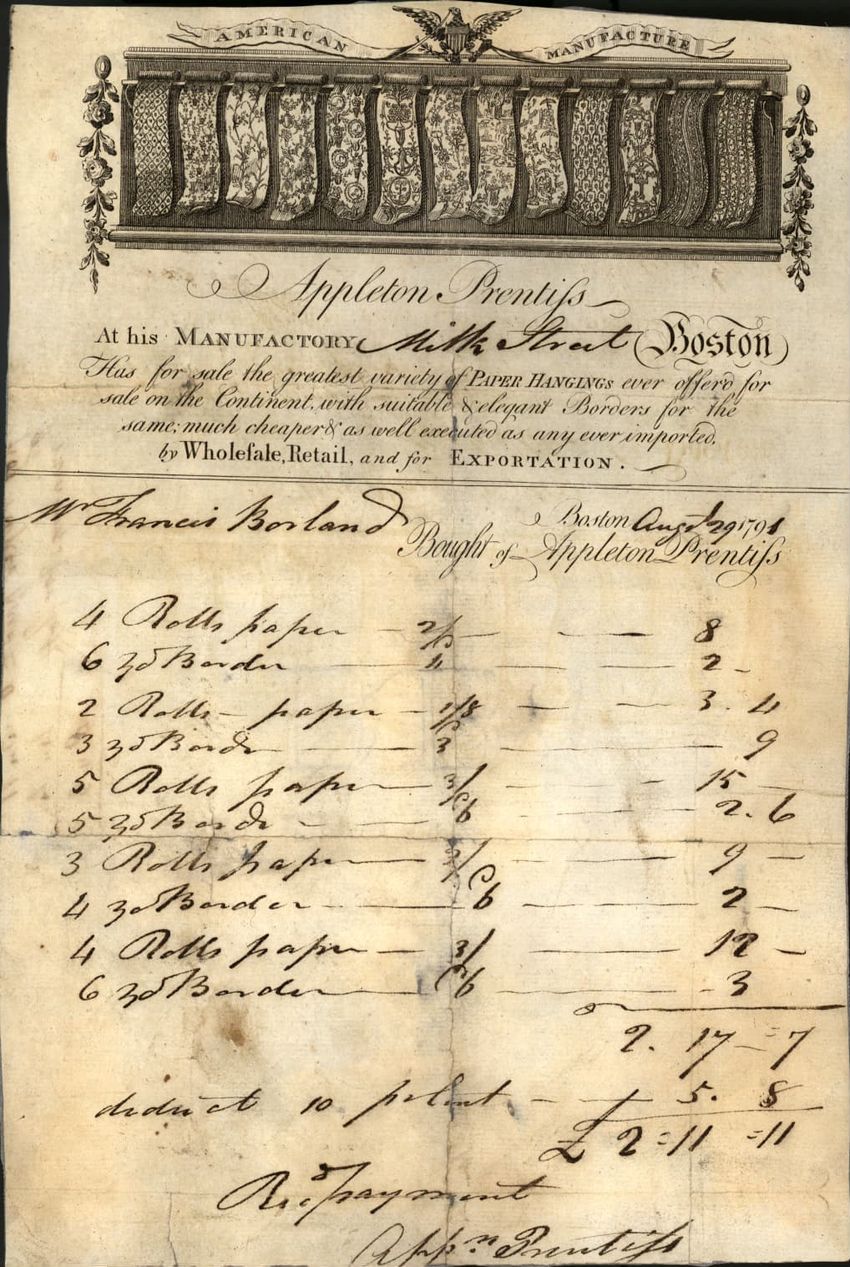 AMERICAN MANUFACTURE
Appleton Prentiſs
At his MANUFACTORY Milk Street (BOSTON)
Has for sale the greatest variety of PAPER HANGINGS ever offer'd for
sale on the Continent, with suitable & elegant Borders for the
same; much cheaper & as well executed as any ever imported,
by Wholeſale, Retail, and for EXPORTATION.
Mr Francis Borland
Boston Augst 29 1791
Bought of Appleton Prentiſs
4 Rolls paper — 2/ — — 8
6 yd Border — 4 — — 2 -
2 Rolls — paper — 1/8 — — 3. 4
3 yd Bordr — 3 — — 9
5 Rolls paper 3/ — — 15 -
5 yd Bordr — 6 — — 2. 6
3 Rolls paper — 3/ — — 9 -
4 yd Border — 6 — — 2 -
4 Rolls paper — 3/ — — 12 -
6 yd Border — 6 — — 3
2. 17 = 7
deduct 10 pr Cent — 5. 8
£ 2 = 11 = 11
Recd payment
Appn Prentiſs